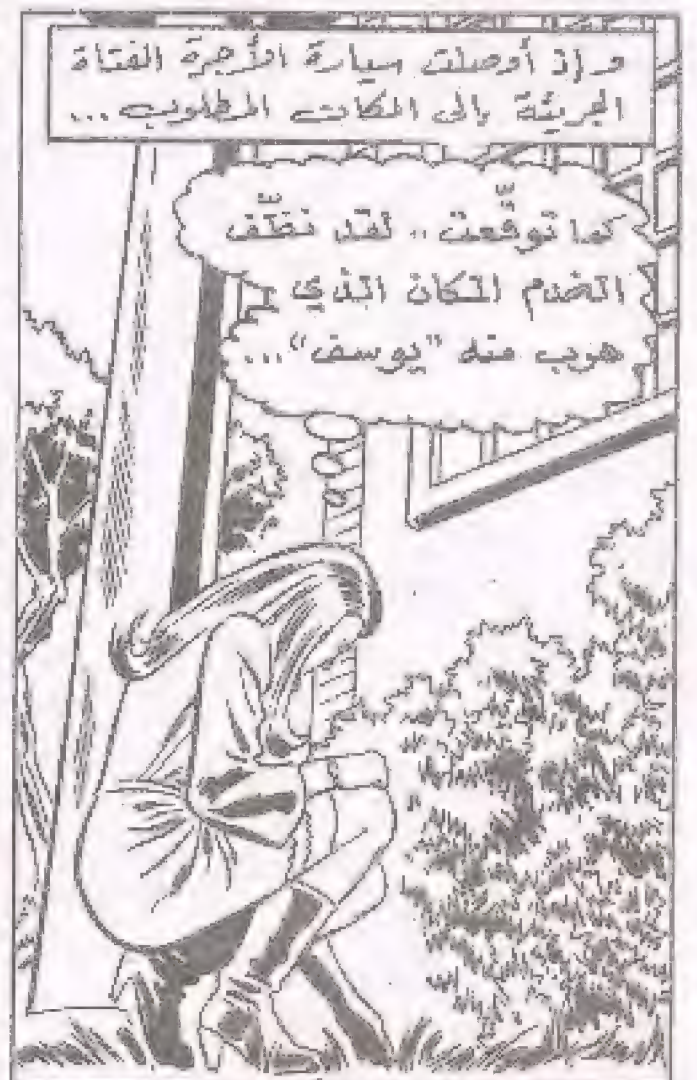 وإذ أوصلت سيارة الأجرة الفتاة
الجريئة إلى المكان المطلوب...
كما توقّعت.. لقد نظّف
الخدم المكان الذي
هرب منه "يوسف"...